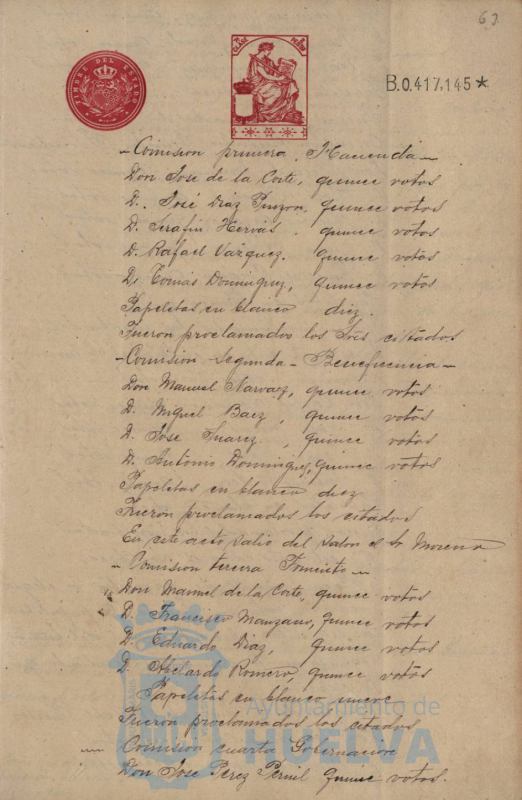 63
TIMBRE DEL ESTADO
CLASE
B.0.417.145*
Comision primera. Hacienda
Don Jose de la Corte, quince votos
D. José Diaz Pinzon, quince votos
D. Serafin Hervás, quince votos
D. Rafael Vazquez. quince votos
D. Tomás Dominguez, quince votos
Papeletas en blanco diez.
Fueron proclamados los Sres citados
Comision segunda - Beneficencia
Don Manuel Narvaez, quince votos
D. Miguel Baez, quince votos
D. Jose Suarez, quince votos
D. Antonio Dominguez, quince votos
Papeletas en blanco diez
Fueron proclamados los citados
En este acto salio del salon el Sr Moreno
Comision tercera Fomento
Don Manuel de la Corte, quince votos
D. Francisco Manzano, quince votos
D. Eduardo Diaz, quince votos
D. Abelardo Romero, quince votos
Papeletas en blanco nueve
Fueron proclamados los citados
Comision cuarta Gobernacion
Don Jose Perez Pernil quince votos.
Ayuntamiento de
HUELVA